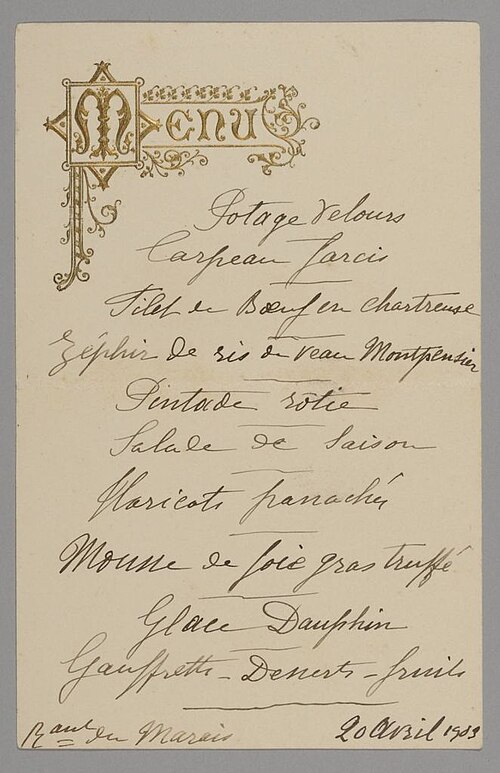 Menu
Potage Velours
Carpeau farcis
Filet de Bœuf en chartreuse
Zéphir de ris de veau Montpensier
Pintade rôtie
Salade de Saison
Haricots panachés
Mousse de foie gras truffé
Glace Dauphin
Gauffrette - Desserts - fruits
Rant du Marais
20 Avril 1903